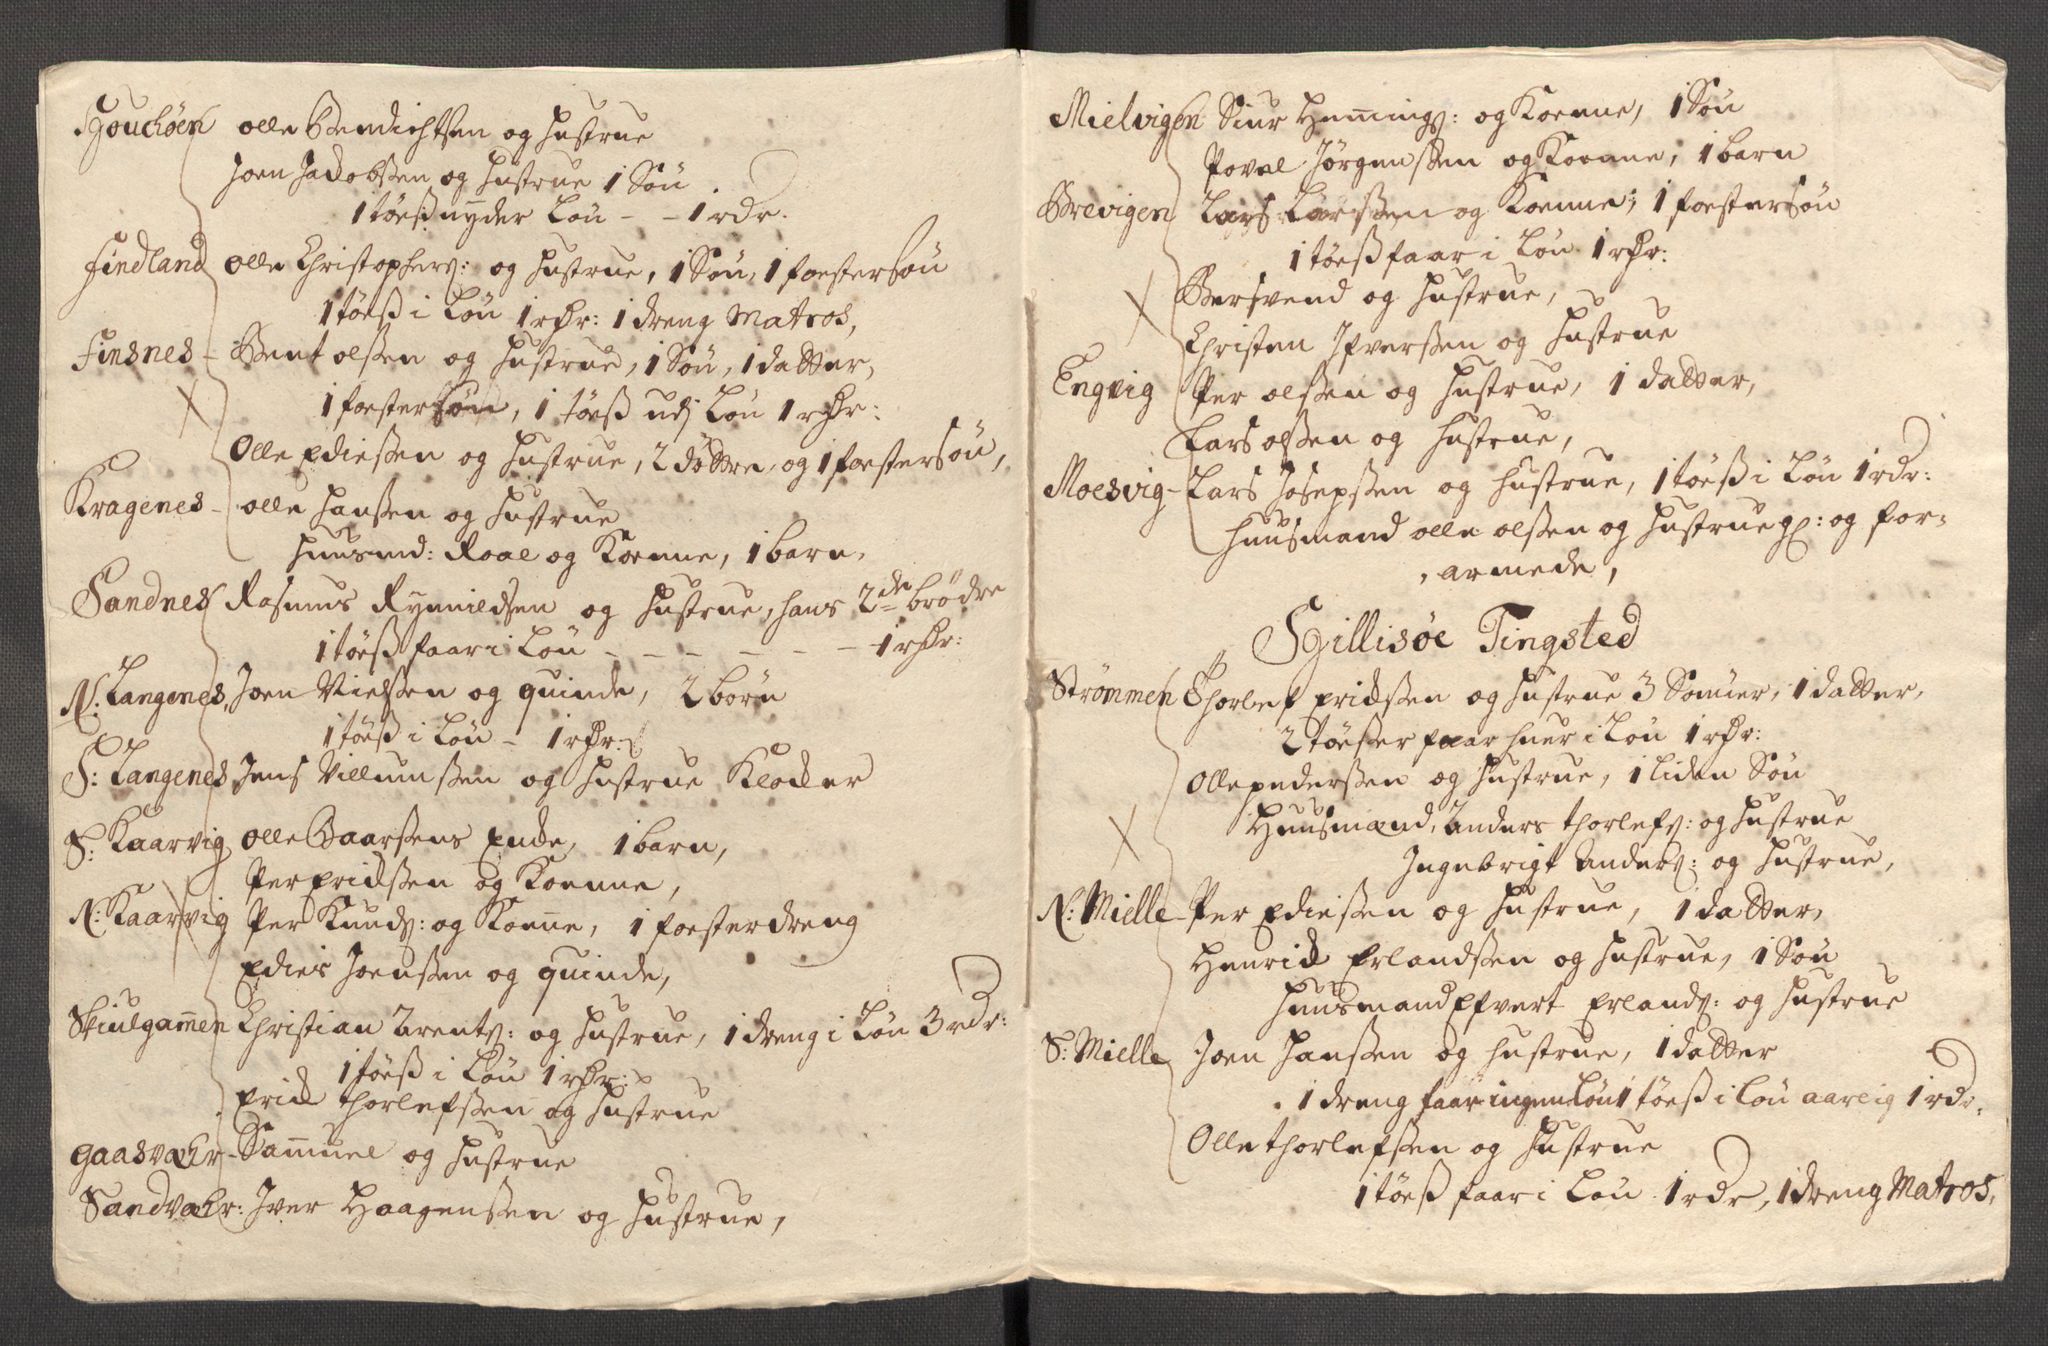 olle Bendichtsen og Hustrue
Joen Jacobssen og Hustrue 1 Søn
1 tøeß nyder Løn - - 1 rdr.
Findland olle Christophers: og Hustrue, 1 Søn, 1 foestersøn
1 tøeß i Løn 1 rdr: 1 dreng Matros,
Finsnes - Bent olssen og Hustrue, 1 Søn, 1 datter,
1 foestersøn, 1 tøeß udj Løn 1 rdr:
Olle Ediessen og Hustrue, 2 døttre, og 1 foestersøn,
Kragenes - olle Hanssen og Hustrue
Huusmd: Roal og Koenne, 1 barn,
Sandnes Rasmus og Hustrue, hans 2de brødre
1 tøeß faar i Løn - - - - - - 1 rdr:
N: Langenes, Joen Nielssen og quinde, 2 børn
1 tøeß i Løn - 1 rdr:
S: Langenes Jens Villumssen og Hustrue Klocker
S: Kaarvig olle Baarsens Encke, 1 barn,
Per Ericssen og Koenne,
N: Kaarvig Per Knuds: og Koene, 1 foesterdreng
Edies Joenssen og quinde,
Skiulgamen Christian Arents: og Hustrue, 1 dreng i Løn 3 rdr:
1 tøeß i Løn 1 rdr:
Erick thorlefssen og Hustrue
Gaasvær - Samuel og Hustrue
Sandvær: Iver Haagenssen og Hustrue,
Mielvigen Siur Hemings: og Koenne, 1 Søn
Povel Jørgenssen og Koenne, 1 barn
Brevigen Lars Larssen og Koenne, 1 foestersøn
1 tøeß faar i Løn 1 rdr:
Bersvend og Hustrue,
Christen Ifverssen og Hustrue
Engvig Per olssen og Hustrue, 1 datter,
Lars olssen og Hustrue,
Moesvig - Lars Josepssen og Hustrue, 1 tøeß i Løn 1 rdr:
Huusmand olle olssen og Hustrue gl: og for-
armede,
Gillisøe Tingsted
Strømmen Thorlef Ericssen og Hustrue 3 Sønner, 1 datter,
2 tøesser faar huer i Løn 1 rdr:
Olle pederssen og Hustrue, 1 liden Søn
Huusmænd, Anders thorlefs: og Hustrue
Ingebrigt Anders: og Hustrue,
N: Mielle - Per Ediessen og Hustrue, 1 datter,
Henrick Erlandssen og Hustrue, 1 Søn
Huusmand Efvert Erlands: og Hustrue
S: Mielle Joen Hanssen og Hustrue, 1 datter
1 dreng faar ingen Løn 1 tøeß i Løn aarlig 1 rdr.
Olle thorlefssen og Hustrue
1 tøeß faar i Løn 1 rdr, 1 dreng Matros,